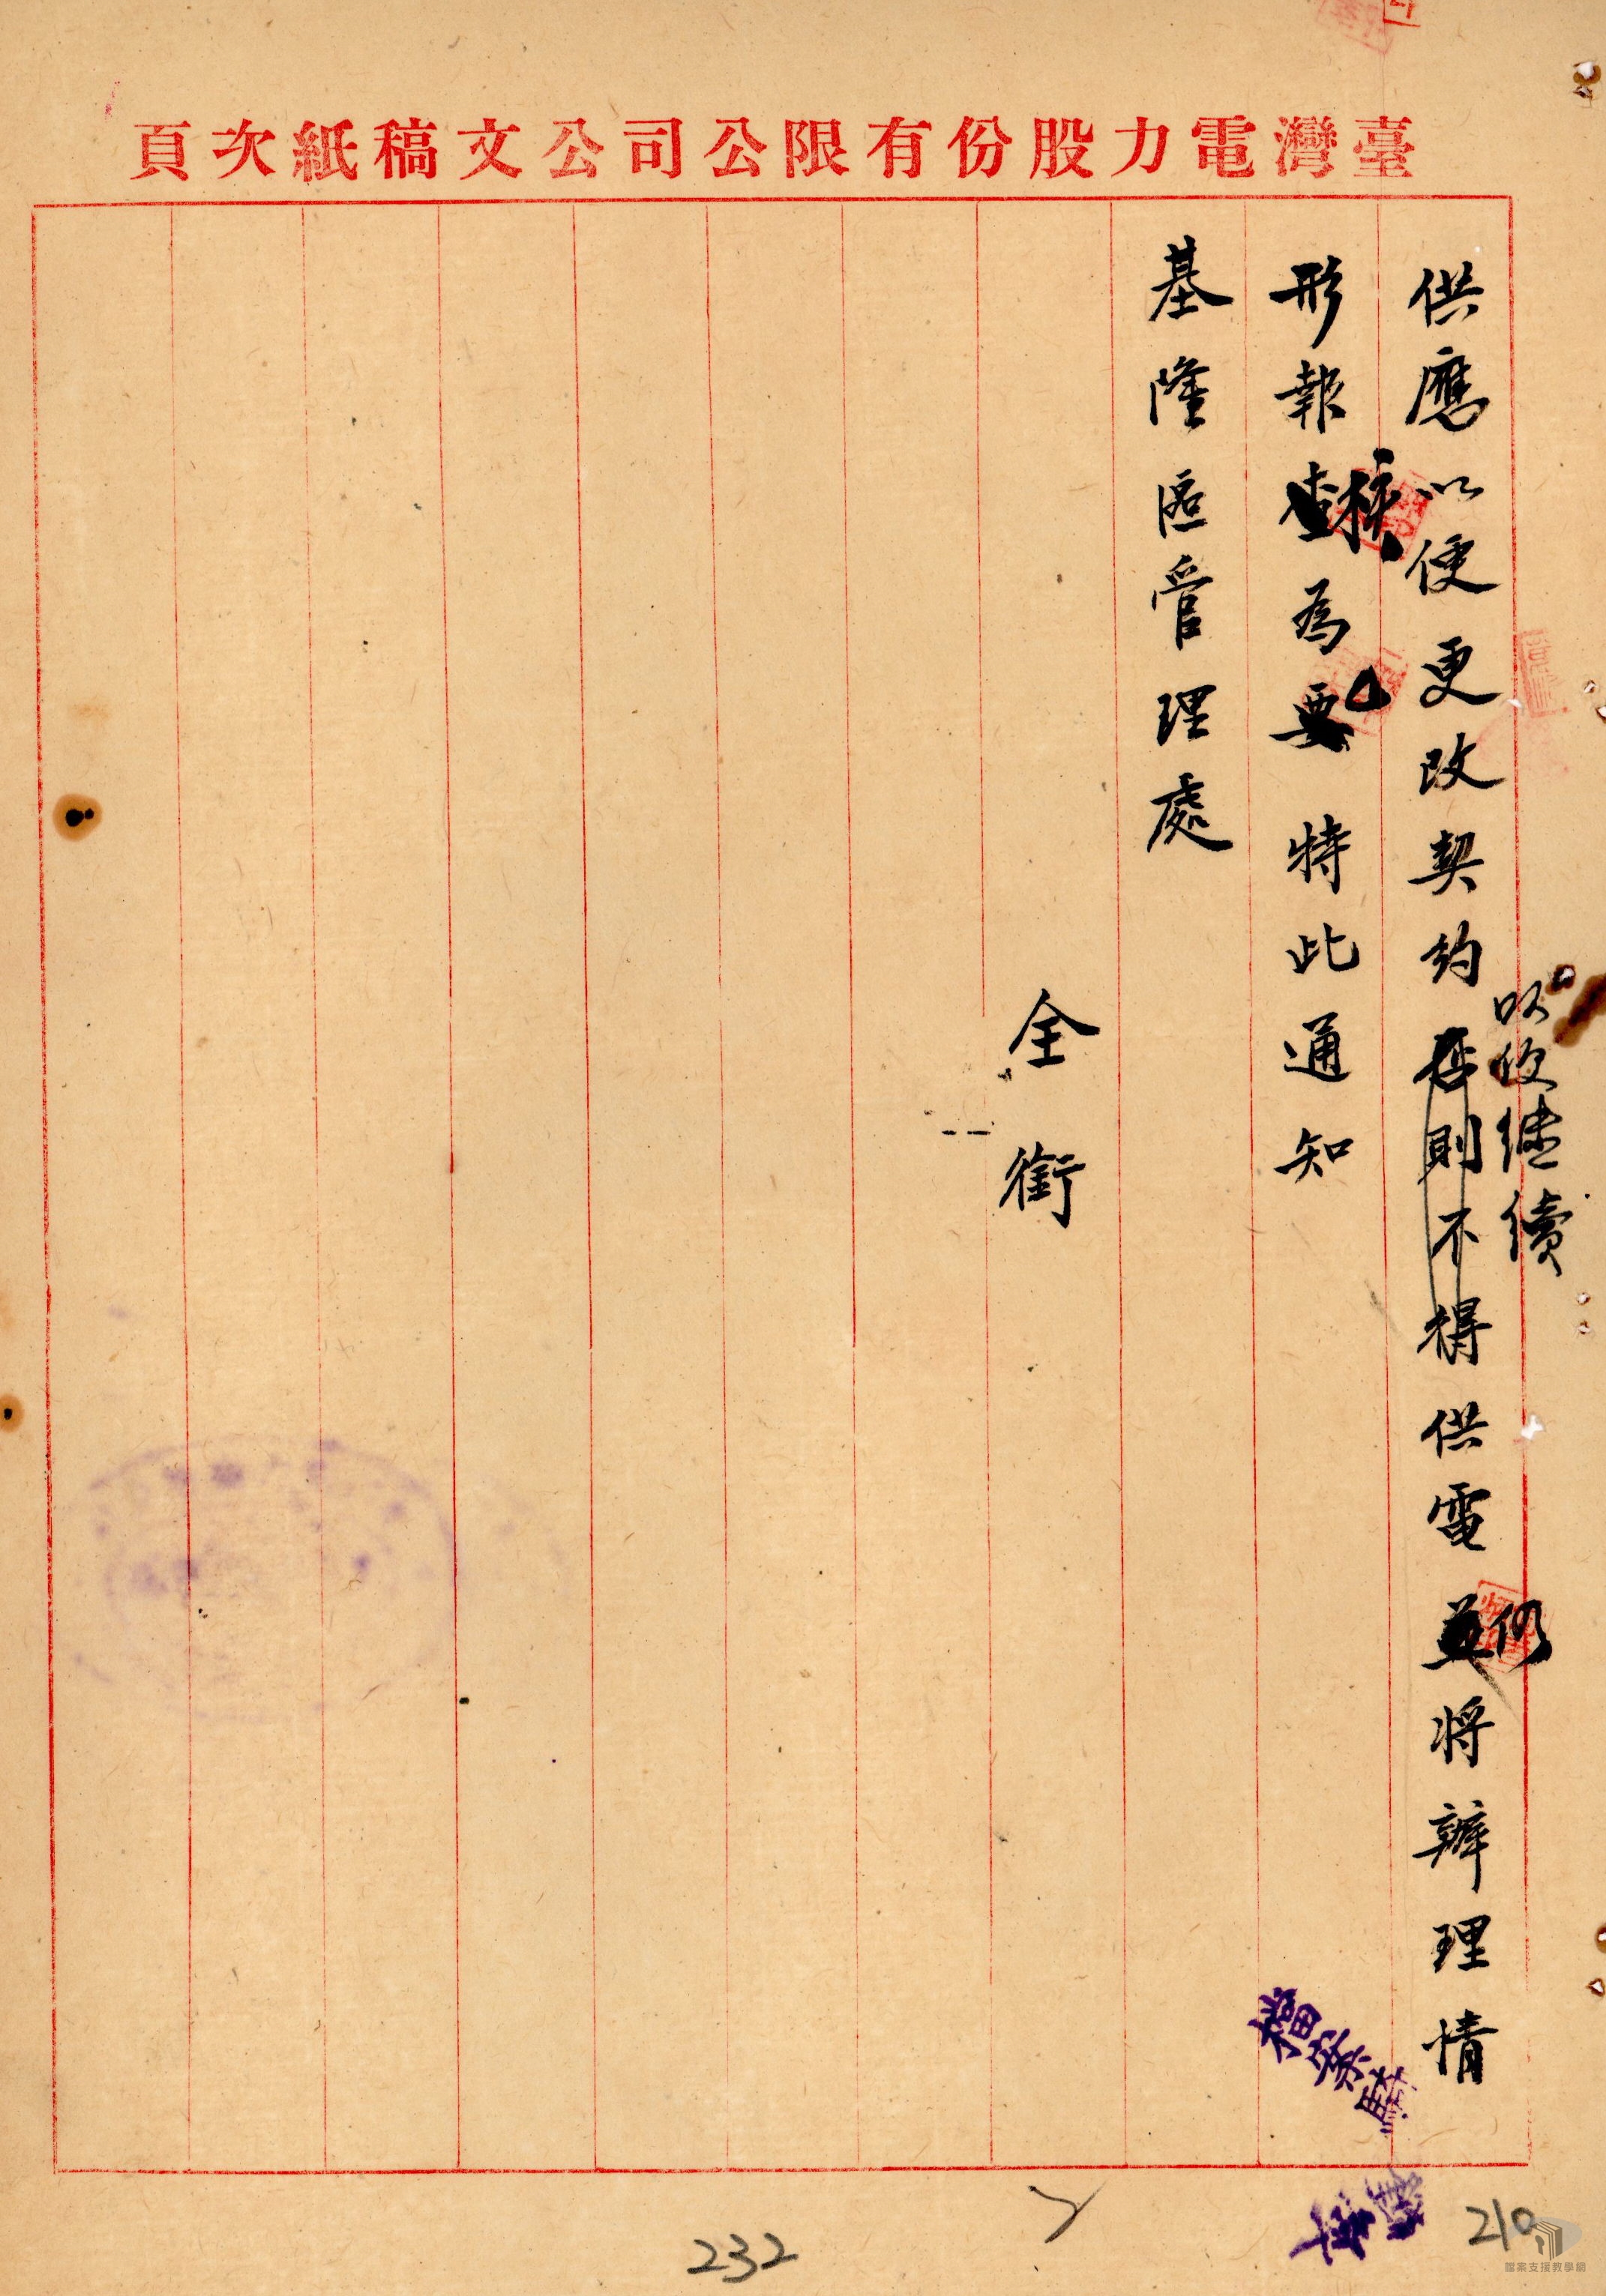 臺灣電力股份有限公司公文稿紙次頁
以便继續
供應以便更改契約否則不得供電並仍將辦理情
形報查核為要特此通知
基隆區管理處
全銜
檔案
232
210
檔案支援教學網